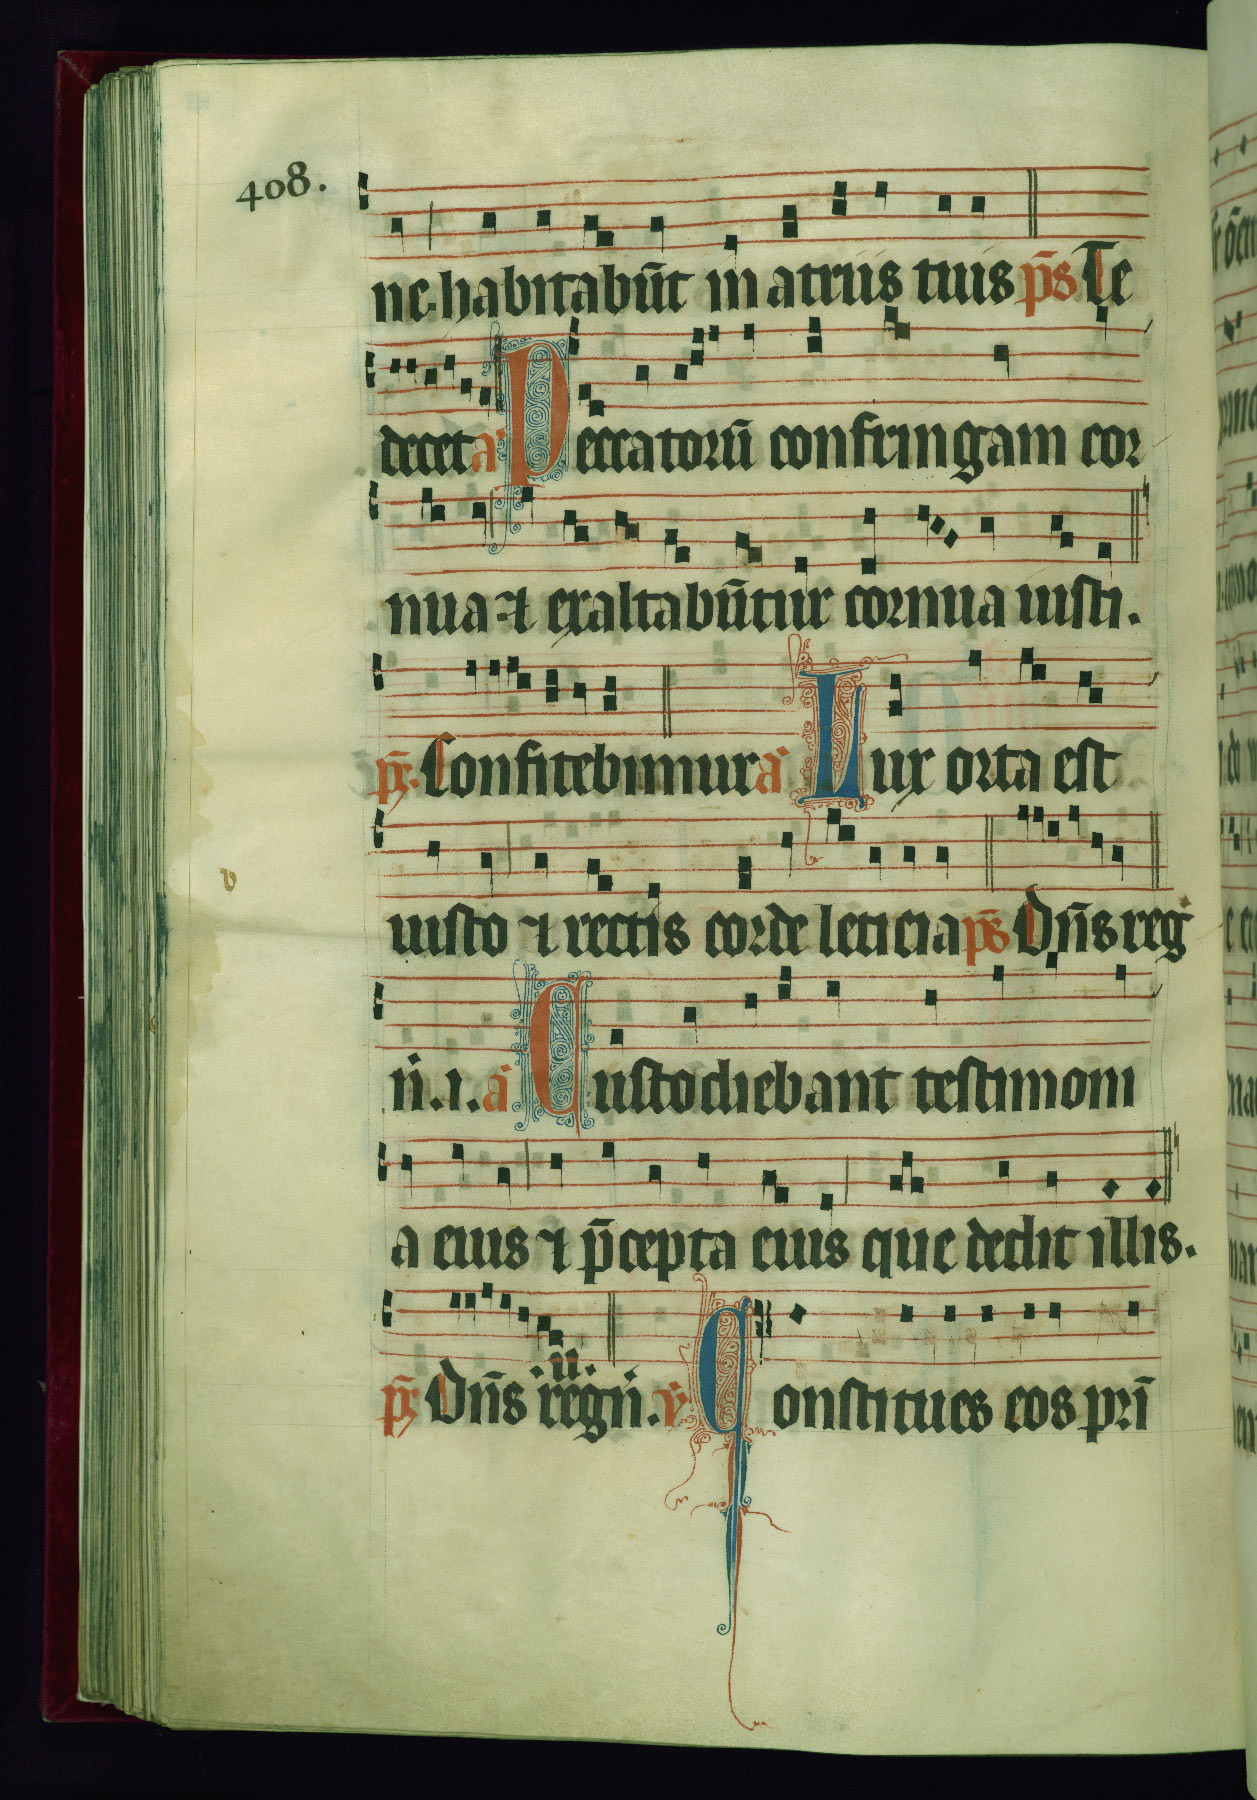 408.
ne habitabūt in atriis tuis p̄s Te
decet a Peccatorū confringam cor
nua ⁊ exaltabūtur cornua iusti.
p̄s. Confitebimur a Lux orta est
iusto ⁊ rectis corde leticia p̄s Dn̄s reg
n. i. a Custodiebant testimoni
a eius ⁊ p̄cepta eius que dedit illis.
.ii.
p̄s Dn̄s regn. v Constitues eos pri
b